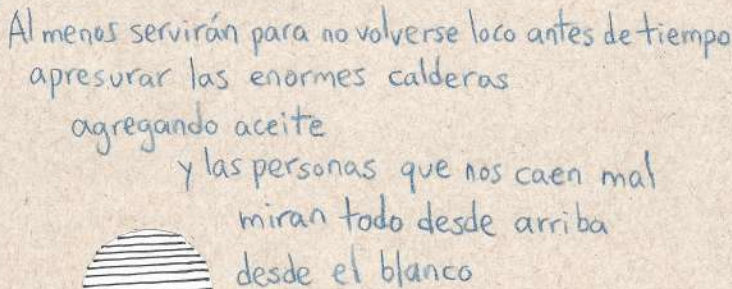 Al menos servirán para no volverse loco antes de tiempo
apresurar las enormes calderas
agregando aceite
y las personas que nos caen mal
miran todo desde arriba
desde el blanco